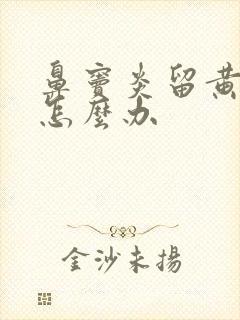 鼻竇炎留黃
怎麼办
金沙未揚